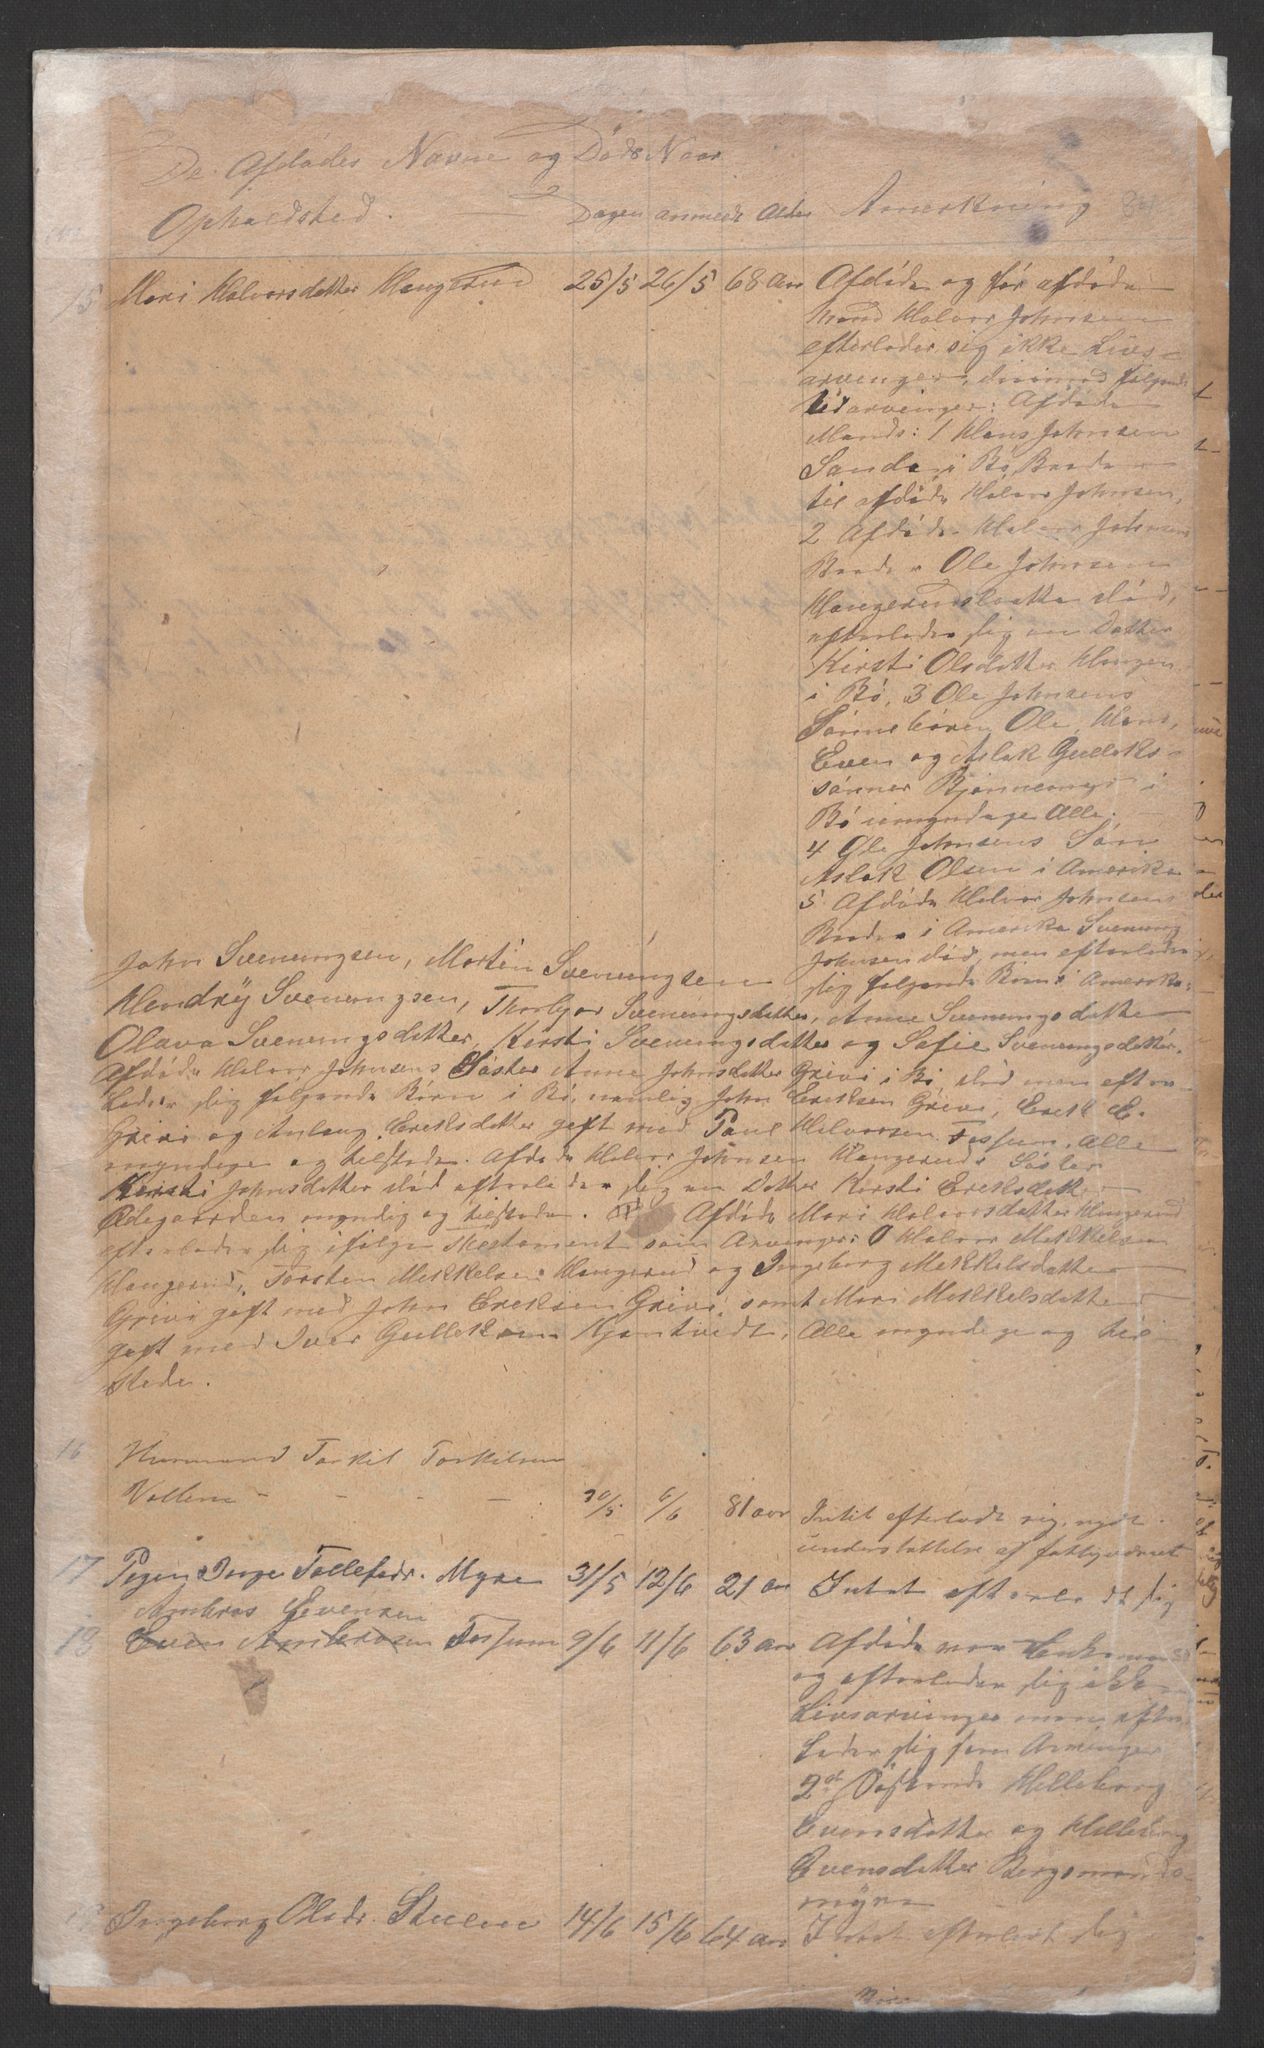 De Afdødes Navne og Døds Naar
Opholdsted. Dagen anmeldt Alder Anmerkning 84
15 Mari Halvorsdatter Haugerud 25/5 26/5 68 aar Afdøde og før afdøde
Mand Halvor Johnsen
efterlader sig ikke Livs-
arvenger, derimod følgende
Udarvinger: Afdøde
Mands: 1 Hans Johnsen
Sanda i Bø, Broder
til afdøde Halvor Johnsen,
2 Afdøde Halvor Johnsens
Broder Ole Johnsen
Haugerudslaatta død,
efterlader sig en Datter
Kirsti Olsdatter Haugen
i Bø, 3 Ole Johnsens
Sønnebørn Ole, Hans,
Even og Aslak Gulleks-
sønner i
Bø umyndige Alle,
4 Ole Johnsens Søn
Aslak Olsen i Amerika
5 Afdøde Halvor Johnsens
Broder i Amerika Svenung
Johnsen død, men efterlader
sig følgende Børn i Amerika:
John Svenungsen, Morten Svenungsen
Hendrÿ Svenungsen, Thorbjør Svenungsdatter, Anne Svenungsdatter
Olava Svenungsdatter, Kirsti Svenungsdatter og Sofie Svenungsdatter.
Afdøde Halvor Johnsens Søster Anne Johnsdatter Grivi i Bø, død men efter-
lader sig følgende Børn i Bø, namlig John Eriksen Grivi, Erik E.
Grivi og Aslaug Eriksdatter gift med Paul Halvorsen Fossum, Alle
myndige og tilstede. Afdøde Halvor Johnsen Haugeruds Søster
Kirsti Johnsdatter død efterlader sig en Datter Kirsti Eriksdatter
Ødegaarden myndig og tilstede. Afdøde Mari Halvorsdatter Haugerud
efterlader sig ifølge Testament som Arvinger: Halvor Mikkelsen
Haugerud, Torsten Mikkelsen Haugerud og Ingeborg Mikkelsdatter
Grivi gift med John Eriksen Grivi, samt Mari Mikkelsdatter
gift med Iver Gulleksen Kjøntvedt, Alle myndige og til
stede.
16 Huusmand Torkil Torkilsen
Vollene - - - - 30/5 6/6 81 aar Intet efterladt sig, nydt
understøttelse af fattigvæsnet
17 Pigen Inge Tollefsdr. Myre 31/5 12/6 21 aar Intet efterladt sig
Ambros Evensen
18 Even Ambrosen Fossum 9/6 11/6 63 aar Afdøde var Enkemand
og efterlader sig ikke
Livsarvinger men efter-
lader sig som Arvinger
2de Søskende Helleborg
Evensdatter og Helleborg
Evensdatter Bergsmands-
myra
19 Ingeborg Olsdr. Skulene 14/6 15/6 64 aar Intet efterladt sig